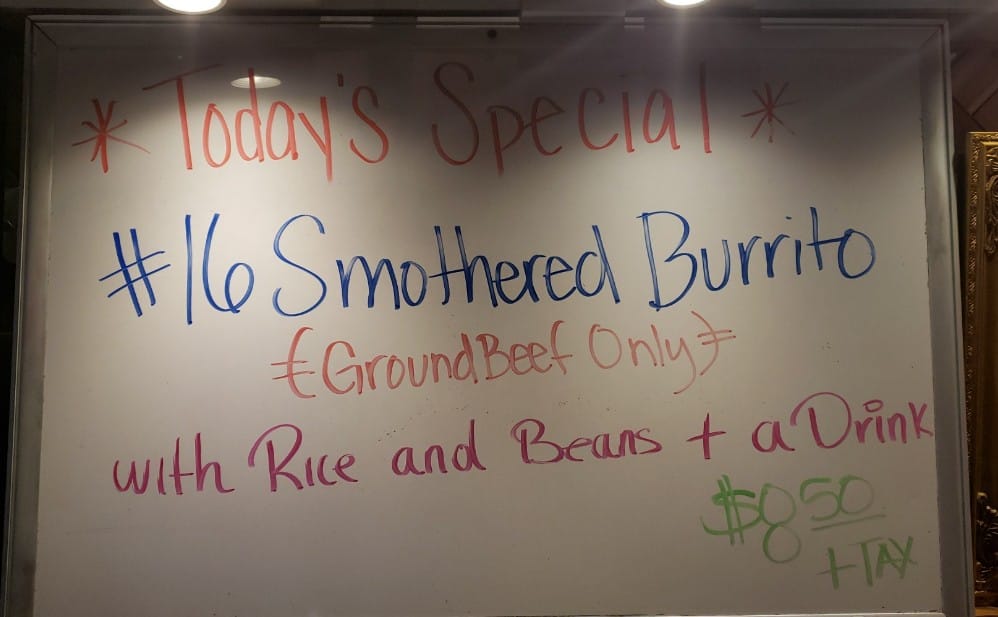 * Today's Special *
#16 Smothered Burrito
(Ground Beef Only)
with Rice and Beans + a Drink
$8 50
+ TAX